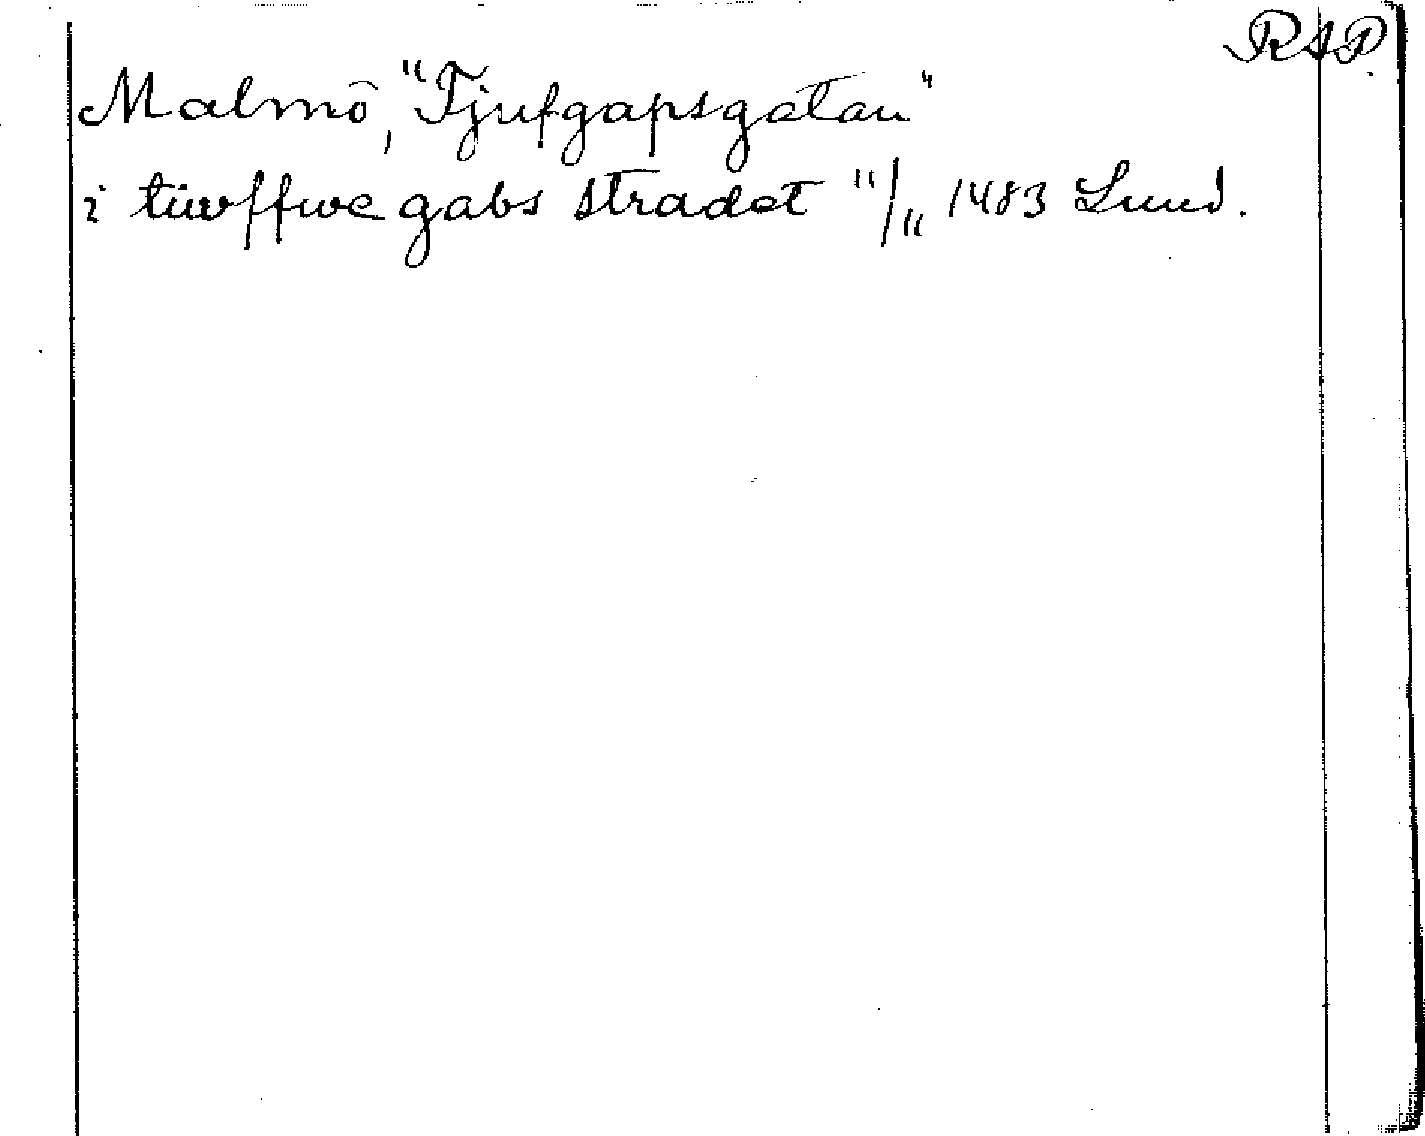 RAP
Malmö, "Tjufgapsgatan"
i tiwffwe gabs stradet 11/11 1483 Lund.